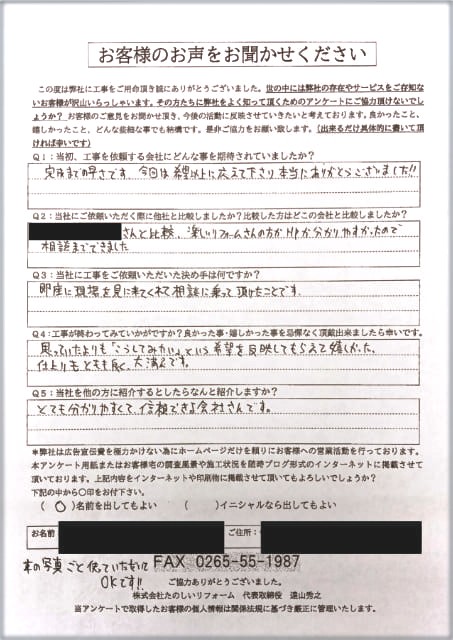 お客様のお声をお聞かせください
この度は弊社に工事をご用命頂き誠にありがとうございました。世の中には弊社の存在やサービスをご存知ない
お客様が沢山いらっしゃいます。その方たちに弊社をよく知って頂くためのアンケートにご協力頂けないでしょう
か？お客様のご意見をお聞かせ頂き、今後の活動に反映させていきたいと考えております。良かったこと、
嬉しかったこと、どんな些細な事でも結構です。是非ご協力をお願い致します。(出来るだけ具体的に書いて頂
ければ幸いです)
Q1：当初、工事を依頼する会社にどんな事を期待されていましたか？
完成までの早さです。今回は希望以上に応えて下さり本当にありがとうございました!!
Q2：当社にご依頼いただく際に他社と比較しましたか？比較した方はどこの会社と比較しましたか？
さんと比較、楽しいリフォームさんの方がHPが分かりやすかったので
相談までできました
Q3：当社に工事をご依頼いただいた決め手は何ですか？
即座に現場を見に来てくれて相談に乗って頂けたことです。
Q4：工事が終わってみていかがですか？良かった事・嬉しかった事を忌憚なく頂戴出来ましたら幸いです。
思っていたよりも「こうしてみたい」という希望を反映してもらえて嬉しかった。
仕上りもとても良く、大満足です。
Q5：当社を他の方に紹介するとしたらなんと紹介しますか？
とても分かりやすくて、信頼できる会社さんです。
＊弊社は広告宣伝費を極力かけない為にホームページだけを頼りにお客様への営業活動を行っております。
本アンケート用紙またはお客様宅の調査風景や施工状況を随時ブログ形式のインターネットに掲載させて
頂いております。上記内容をインターネットや印刷物に掲載させて頂いてもよろしいでしょうか？
下記の中から〇印をお付下さい。
(〇)名前を出してもよい ( )イニシャルなら出してもよい
お名前 ご住所：
家の写真ごと使っていただいて
OKです!!
FAX 0265-55-1987
ご協力ありがとうございました。
株式会社たのしいリフォーム 代表取締役 遠山秀之
当アンケートで取得したお客様の個人情報は関係法規に基づき厳正に管理いたします。